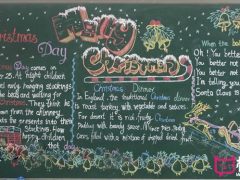 Christmas Day
Merry
Christmas
Day comes on
25. At night children
hang stockings
beds and waiting for
Christmas. They think he
down from the chimney
presents into their
stockings. How
happy children
that
Christmas Dinner
In England, the traditional Christmas dinner
is roast turkey with vegetables and sauces.
For dessert it is rich fruity Christmas
Pudding with brandy sauce. Mince pies, pastry
cases filled with a mixture of chopped dried
When the
You better
You better not
You better not
I'm telling
Santa Claus is